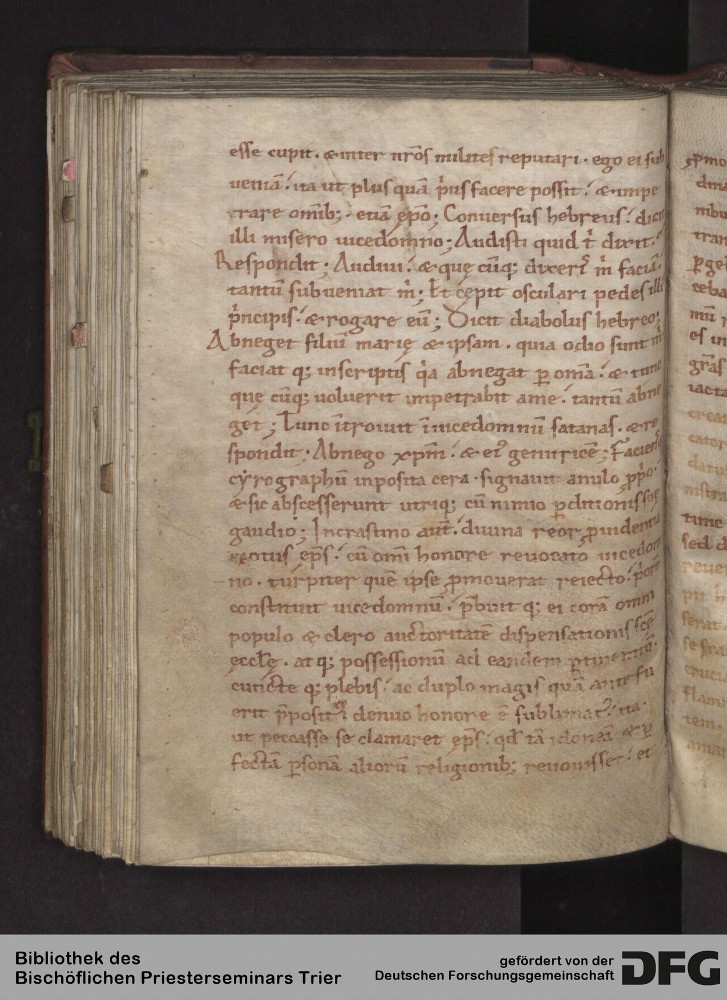 esse cupit. & inter nr̄os milites reputari. ego ei sub
ueniā. ita ut plus quā p̄us facere possit. & impe
trare omīb; etiā ep̄o; Conuersus hebreus. dicit
illi misero uicedomno; Audisti quid t̄ dixit.
Respondit; Audiui. & quę cūq; dixerit m̄ faciā.
tantū subueniat m̄; Et cępit osculari pedes illi
p̄ncipis. & rogare eū; Dicit diabolus hebreo;
Abneget filiū marię & ipsam. quia odio sunt m̄
faciat q; inscriptis q̄a abnegat p̄ om̄a. & tunc
quę cūq; uoluerit impetrabit a me. tantū abne
get; Tunc īt̄roiuit ī uicedomnū satanas. & re
spondit. Abnego xp̄m. & ei genitricē; Faciens
cyrographū inposita cera. signauit anulo p̄p̄o.
& sic abscesserunt utriq; cū nimio p̄ditionis suę
gaudio; In crastino aut̄. diuina reor p̄uidentia
motus ep̄s. cū om̄i honore reuocato uicedom
no. turpiter quē ipse p̄mouerat reiecto. p̄ore
constituit uicedomnū. p̄buit q; ei corā omni
populo & clero auctoritatē dispensationis sc̄ę
ęccłę. atq; possessionū ad eandem pertinentiū.
cuncte q; plebis. ac duplo magis quā ante fu
erit p̄posit᷒ denuo honore ē sublimat᷒. ita.
ut peccasse se clamaret ep̄s. qd̄ tā idoneā & p̄
fectā p̄sonā aliorū religionib; reuouisset. et
Bibliothek des
Bischöflichen Priesterseminars Trier
gefördert von der
Deutschen Forschungsgemeinschaft
DFG